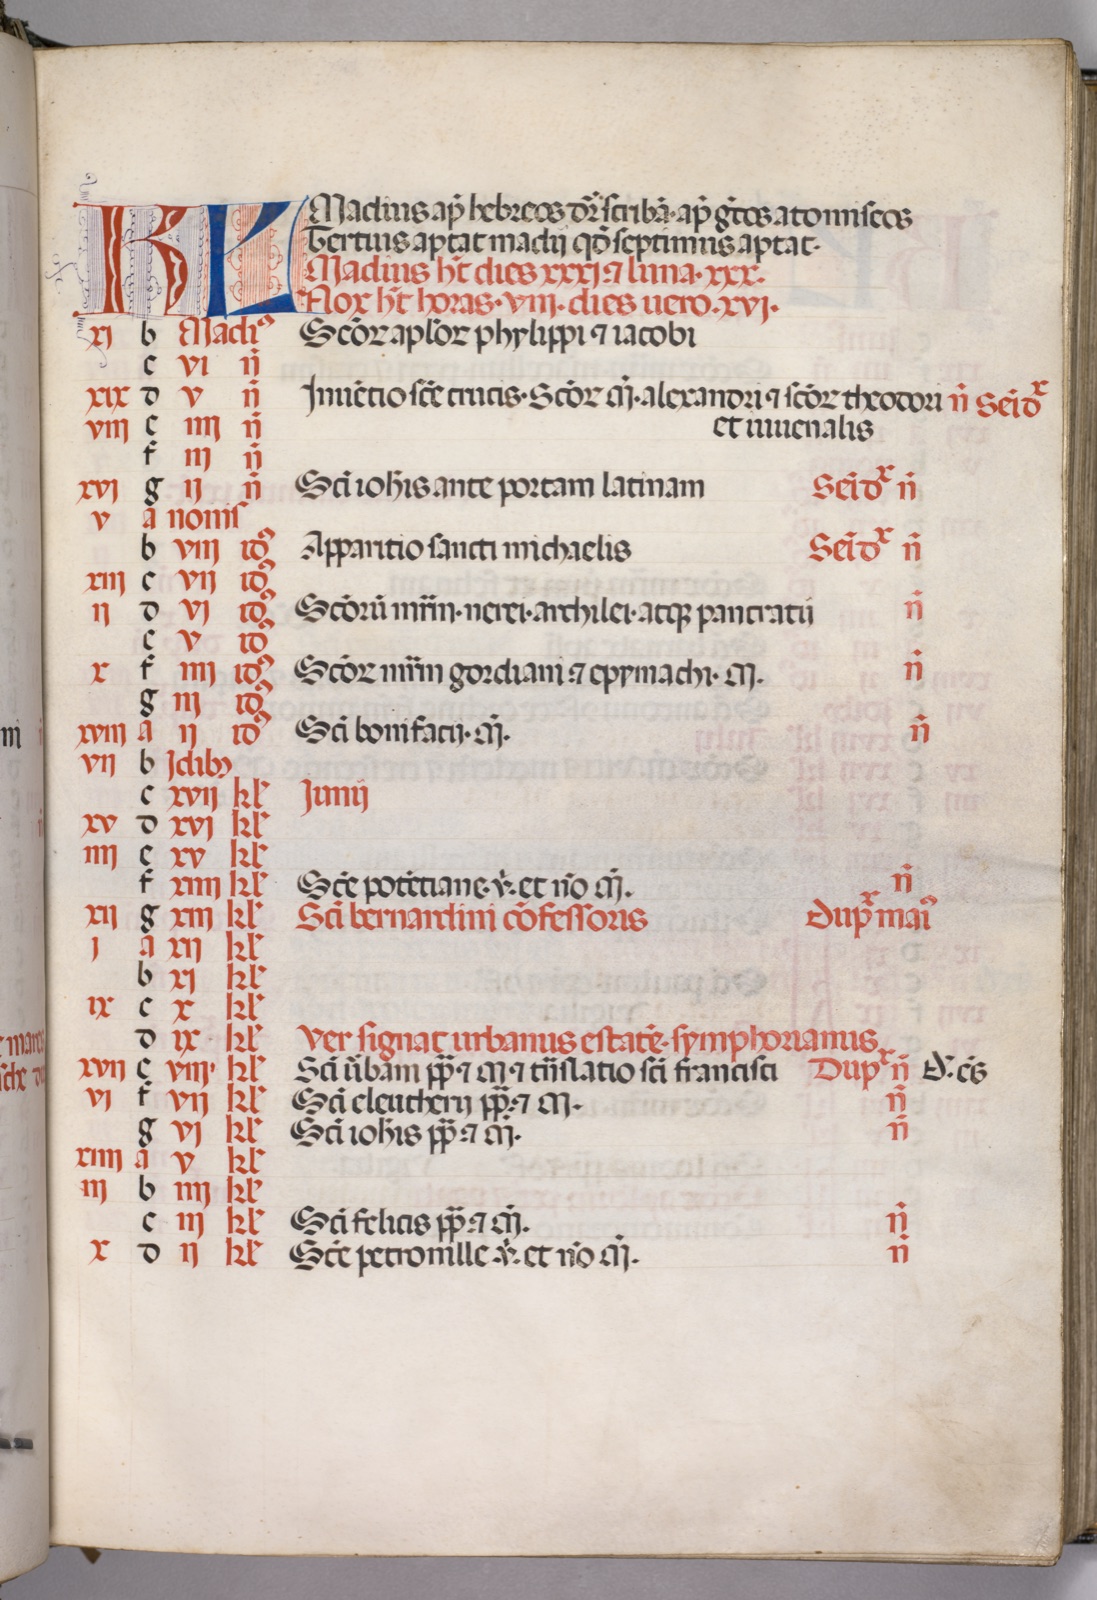 KL Madius ap̄ hebreos dr̄ scribā· ap̄ ḡcos atomiseos
Tertius aptat madij qd̄ septimus aptat·
Madius ht̄ dies xxxj ⁊ luna· xxx·
Nox ht̄ horas· viii· dies uero· xvj·
xj b Madiꝰ Scōꝝ aplōꝝ phylippi ⁊ iacobi
c vj n̄
xix d v n̄ Inuētio scē crucis· Scōꝝ m̄· alexandri ⁊ scōꝝ theodori n̄ Semidx
viii e iiii n̄ et iuuenalis
f iii n̄
xvj g ii n̄ Scī ioh̄is ante portam latinam Semidx n̄
v a nonis
b viii idꝰ Apparitio sancti michaelis Semidx n̄
xiii c vii idꝰ
ii d vi idꝰ Scōrū mr̄m· nerei· archilei· atqꝫ pancratii n̄
e v idꝰ
x f iiii idꝰ Scōꝝ mr̄m gordiani ⁊ epymachi· m̄· n̄
g iii idꝰ
xviii a ii idꝰ Scī bonifacij· m̄· n̄
vii b Idibꝫ
c xvii kl̄ Iunij
xv d xvj kl̄
iiii e xv kl̄
f xiiii kl̄ Scē potētiane· v̄· et nō m̄· n̄
xii g xiii kl̄ Scī bernardini cōfessoris Dupx maiꝰ
j a xii kl̄
b xj kl̄
ix c x kl̄
d ix kl̄ Ver signat urbanus estatē· symphorianus
xvii e viii· kl̄ Scī ūbani pp̄ ⁊ m̄ ⁊ tn̄slatio scī francisci Dupx n̄ d· eīs
vj f vii kl̄ Scī eleutherij pp̄ ⁊ m̄· n̄
g vj kl̄ Scī ioh̄is pp̄ ⁊ m̄· n̄
xiiii a v kl̄
iii b iiii kl̄
c iii kl̄ Scī felicis pp̄ ⁊ m̄· n̄
x d ii kl̄ Scē petronille v̄· et nō m̄· n̄